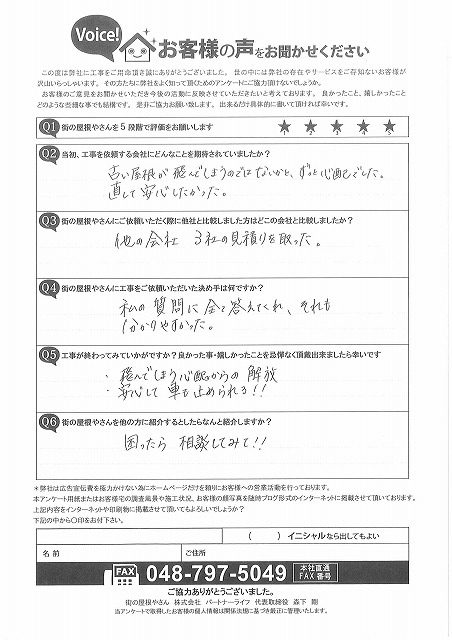 Voice!
お客様の声をお聞かせください
この度は弊社に工事をご用命頂き誠にありがとうございました。世の中には弊社の存在やサービスをご存知ないお客様が
沢山いらっしゃいます。その方たちに弊社をよく知って頂くためのアンケートにご協力頂けないでしょうか。
お客様のご意見をお聞かせいただき今後の活動に反映させていただきたいと考えております。良かったこと、嬉しかったこと
どのような些細な事でも結構です。是非ご協力お願い致します。出来るだけ具体的に書いて頂ければ幸いです。
Q1 街の屋根やさんを5段階で評価をお願いします ★ ★ ★ ★ ★
1 2 3 4 5
Q2 当初、工事を依頼する会社にどんなことを期待されていましたか?
古い屋根が飛んでしまうのではないかと、ずっと心配でした。
直して安心したかった。
Q3 街の屋根やさんにご依頼いただく際に他社と比較しました方はどこの会社と比較しましたか?
他の会社 3社の見積りを取った。
Q4 街の屋根やさんに工事をご依頼いただいた決め手は何ですか?
私の質問に全て答えてくれ、それも
わかりやすかった。
Q5 工事が終わってみていかがですか?良かった事・嬉しかったことを忌憚なく頂戴出来ましたら幸いです
・飛んでしまう心配からの解放
・安心して車も止められる!!
Q6 街の屋根やさんを他の方に紹介するとしたらなんと紹介しますか?
困ったら相談してみて!!
*弊社は広告宣伝費を極力かけない為にホームページだけを頼りにお客様への営業活動を行っております。
本アンケート用紙またはお客様宅の調査風景や施工状況、お客様の顔写真を随時ブログ形式のインターネットに掲載させて頂いております。
上記内容をインターネットや印刷物に掲載させて頂いてもよろしいでしょうか?
下記の中から〇印をお付下さい。
( ) イニシャルなら出してもよい
名前 ご住所
FAX 048-797-5049 本社直通 FAX番号
ご協力ありがとうございました。
街の屋根やさん 株式会社 パートナーライフ 代表取締役 森下 剛
当アンケートで取得したお客様の個人情報は関係法規に基づき厳正に管理いたします。